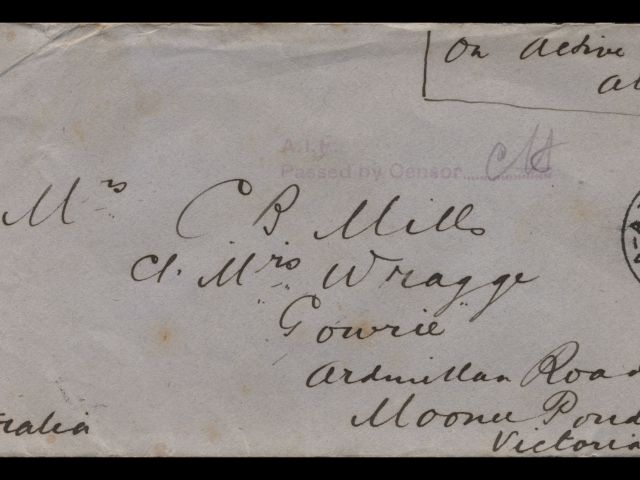 On Active
A.I.F.
Passed by Censor
Mrs C B Mills
c/. Mrs Wragge
Gowrie
Ardmillan Road
Moonee Pond
Victoria
tralia